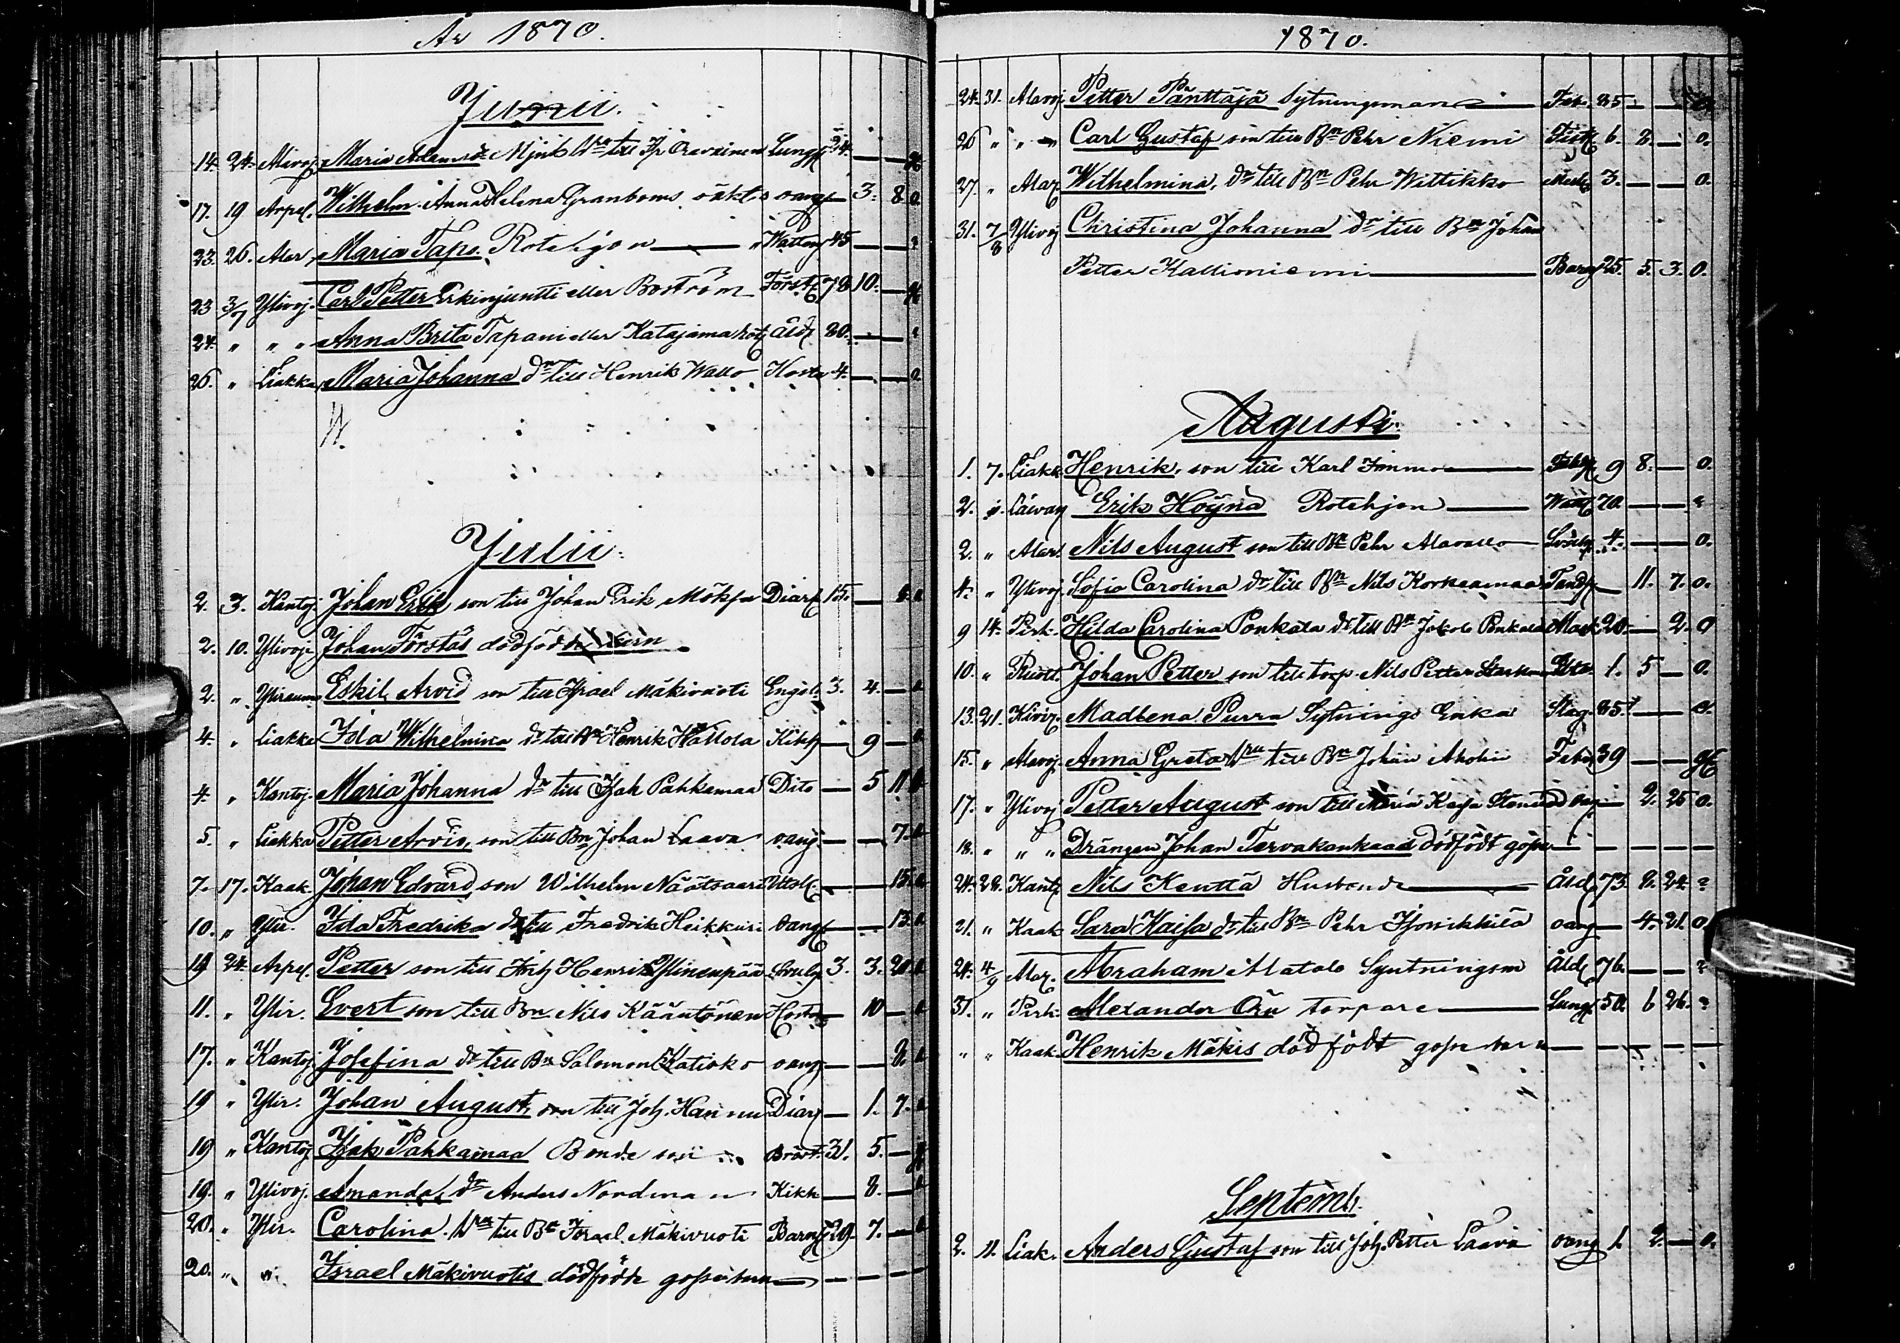 År 1870.
Junii.
14. 24. Alivoj. Maria Adamsdr Mjnk Hru till Jp Oravainen Lungs 34. — —
17. 19 Arpel. Wilhelm Anna Helena Granboms oäkta oang — 3. 8 o
23. 26. Alar. Maria Tapo Rotehjon — Wattens 45 — —
23 3/7 Ylivoj. Carl Petter Erkinjuntti eller Boström Först 78 10. —
24. " " " Anna Brita Tapani eller Katajama Åld 80. — —
26. " Liakka Maria Johanna dr till Henrik Wallo Hosta 4. — —
Julii.
2. 3. Kantoj. Johan Erik son till Johan Erik Mökja Diare 15. —
2. 10. Ylivoje Johan Förstås dödfödde barn
2. " Yliraum Eskil Arvid son till Israel Mäkivuoti Engels. 3. 4. —
4. " Liakka Ida Wilhelmina dr till Bn Henrik Hallola Kikh — 9 —
4. " Kantoj. Maria Johanna dr till Isak Pahkamaa Dito — 5 11
5. " Liakka Petter Arvid, son till Bn Johan Laava oang — — 7.
7. 17. Kaak. Johan Edvard son Wilhelm Näätsaari — — 15.
10. " Ylir. Ida Fredrika dr till Fredrik Heikkuri oang — — 13.
19 24. Arpel. Petter son till Fritz Henrik Ylinenpää 3. 3. 20
11. " Ylir. Evert son till Bn Nils Kääntönen Hosta — 10 —
17. " Kantoj. Josefina dr till Bn Salomon Katisko oang — — 2.
19 " Ylir. Johan August, son till Joh. Hannu Diare — 1. 7.
19 " Kantoj Isak Pahkamaa Bonde son Bröst. 31. 5. —
19. " Ylivoj. Amanda, dr Anders Nordman Kikh — 8. —
20. " Ylir. Carolina. Hru till Bn Israel Mäkivuoti Barns 29. 7. —
20. " " Israel Mäkivuotis dödfödde gossebarn — — — —
1870.
24. 31. Alavoj Petter Pänttäjä Sytningsman — 85 — —
26 " " Carl Gustaf son till Bn Pehr Niemi 6. 2. — o.
27. " Alar. Wilhelmina, dr till Bn Pehr Wittikko 3. — — o.
31. 7/8 Ylivoj Christina Johanna dr till Bn Johan
Petter Kallioniemi — Barns 25. 5. 3. o.
Augusti.
1. 7. Liakk Henrik, son till Karl Immo — 9 8. — o.
2. " Erik Höynä Rotehjon — Watt 70. — —
2. " Alar. Nils August son till Bn Pehr Alavallo 4. — — o.
4. " Ylivoj Sofia Carolina dr till Bn Nils Korkeamaa Tands — 11. 7. o.
9 14. Pirk. Hilda Carolina Ponkala dr till Bn Jakob Ponkala Mask 20. — 2. o
10. " Ruott. Johan Petter son till torp. Nils Petter 1. 5 — o.
13. 21. Kivir. Madlena Purra Sytnings Enka Slag. 85. — —
15. " Alavoj. Anna Greta Hru till Bn Johan Aholin 39 — — gf
17. " Ylivoj Petter August son till Maria Kajsa oang — 2. 25 o.
18. " " " Drängen Johan Tervakankaas dödfödt gosse — — — —
24. 28. Kantj Nils Kenttä Husbonde — Åld 73. 2. 24.
21. " Kaak Sara Kaisa dr till Bn Pehr oang — 4. 21. o
24. 4/9 Alar. Abraham Alatalo Syntningsm Åld 76. — —
31. " Pirk. Alexander torpare — Lungs 50. 6 26.
" " Kaak. Henrik Mäkis dödfödt gosse barn — — — —
Septemb.
2. 11. Liak. Anders Gustaf son till Joh. Petter Laava oang 1. 2. — o.